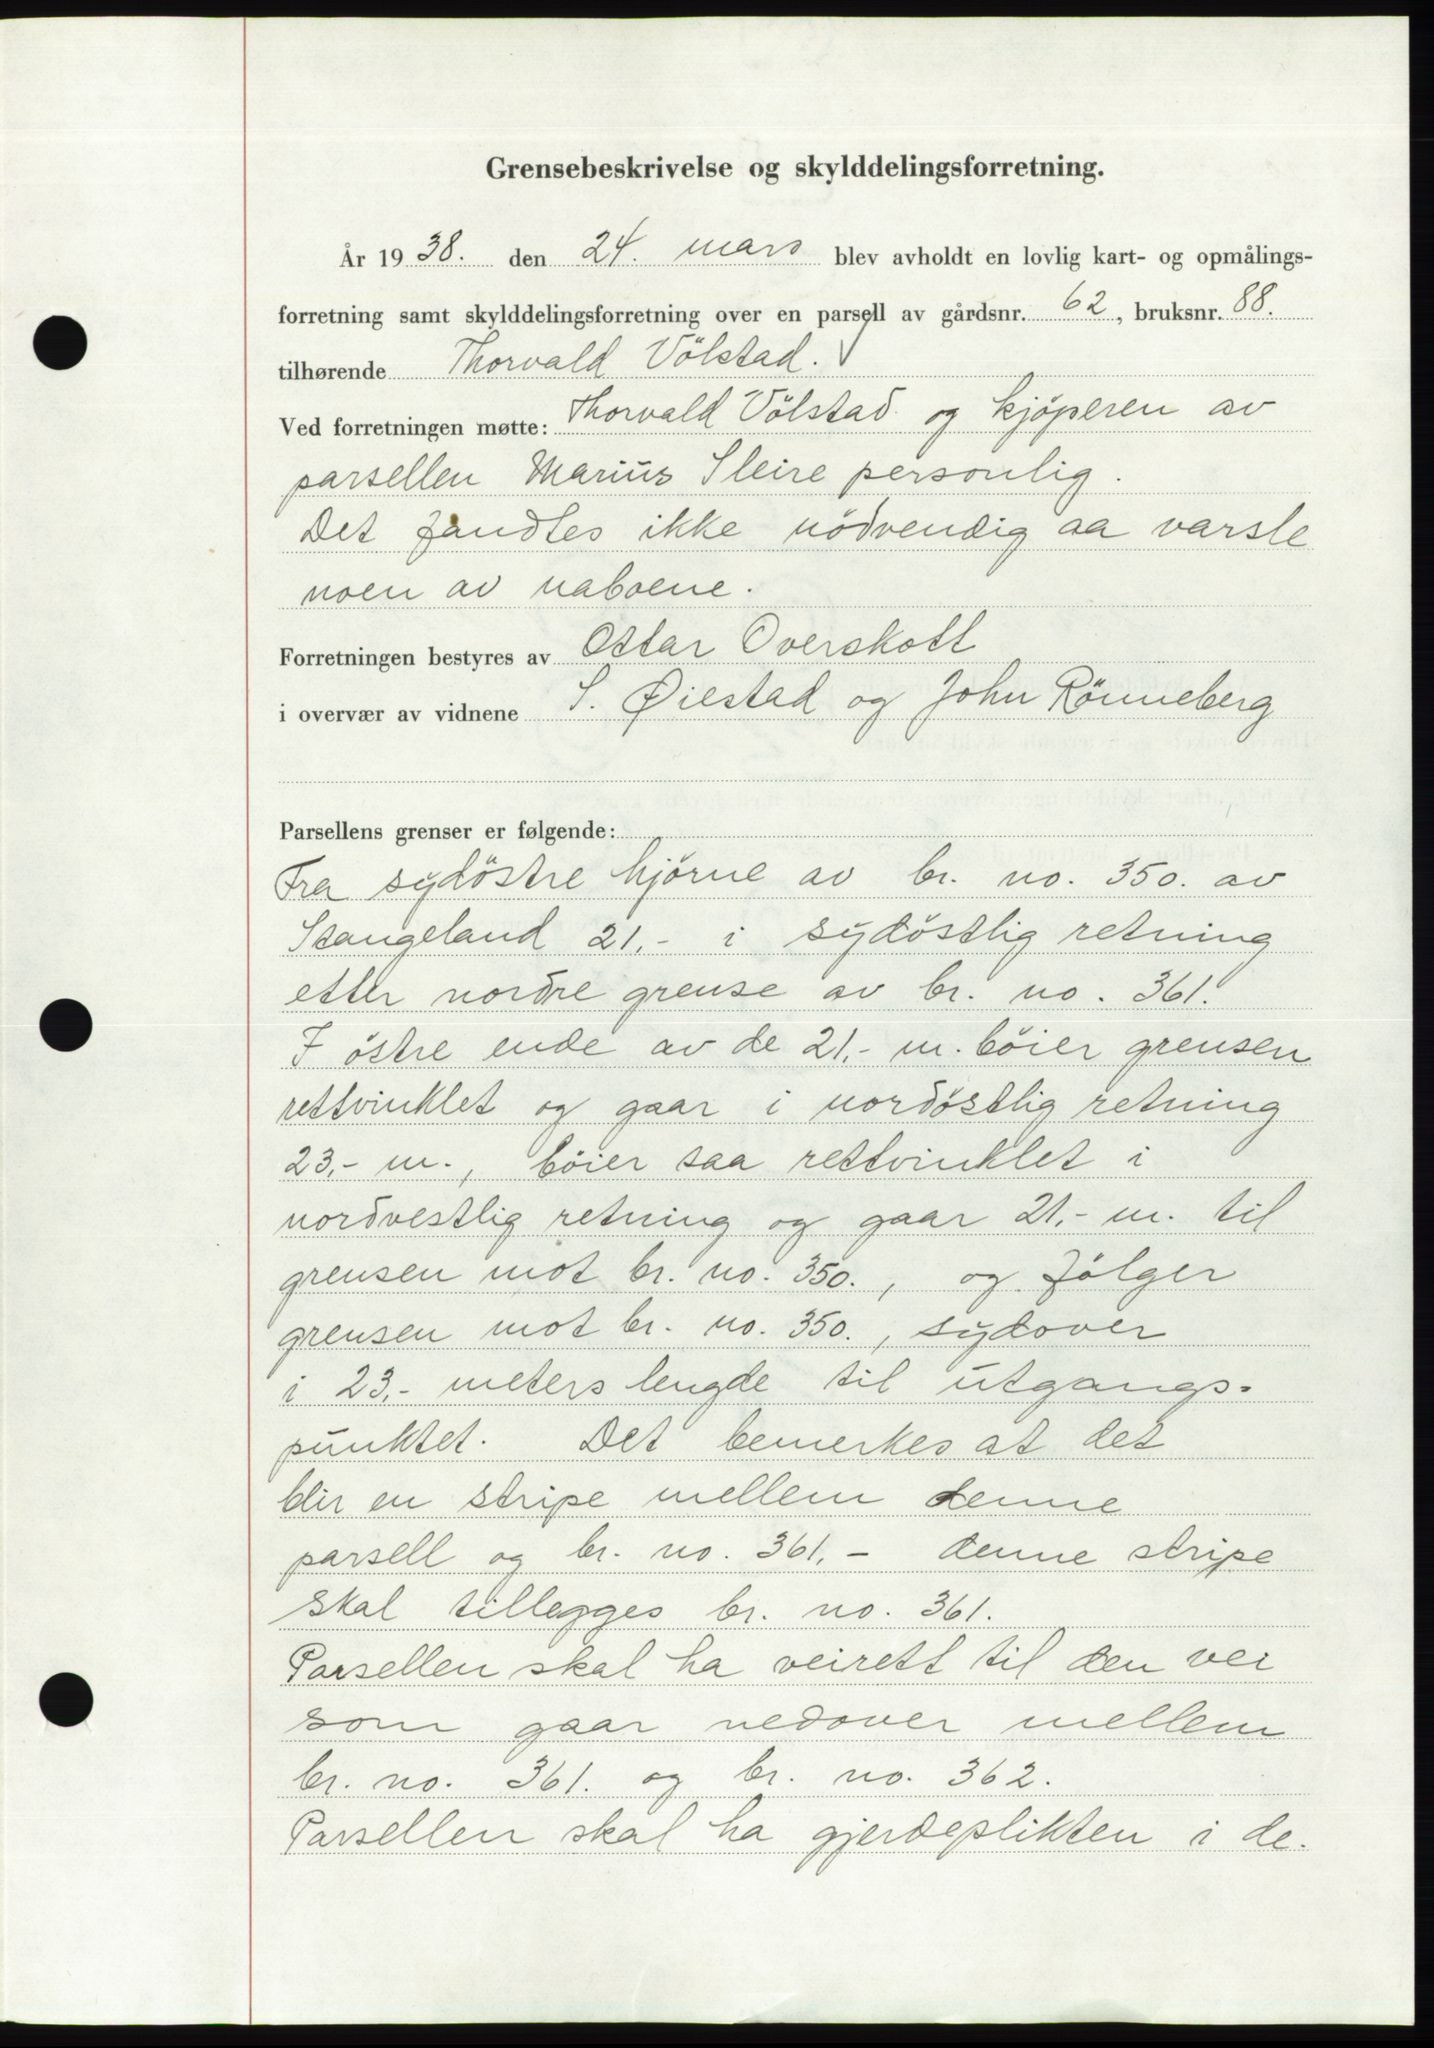 Grensebeskrivelse og skylddelingsforretning.
År 19 38. den 24. mars blev avholdt en lovlig kart- og opmålings-
forretning samt skylddelingsforretning over en parsell av gårdsnr. 62, bruksnr. 88.
tilhørende Thorvald Völstad.
Ved forretningen møtte: Thorvald Völstad og kjöperen av
parsellen Marius Sleire personlig.
Det fandtes ikke nödvendig aa varsle
noen av naboene.
Forretningen bestyres av Ottar Overskott
i overvær av vidnene S. Øiestad og John Rönneberg
Parsellens grenser er følgende:
Fra sydöstre hjörne av br. no. 350. av
Stangeland 21,- i sydöstlig retning
etter nordre grense av br. no. 361.
I östre ende av de 21,- m. böier grensen
rettvinklet og gaar i nordöstlig retning
23,- m., böier saa rettvinklet i
nordvestlig retning og gaar 21,- m. til
grensen mot br. no. 350., og fölger
grensen mot br. no. 350., sydover
i 23,- meters lengde til utgangs-
punktet. Det bemerkes at det
blir en stripe mellem denne
parsell og br. no. 361,- denne stripe
skal tillegges br. no. 361.
Parsellen skal ha veirett til den vei
som gaar nedover mellem
br. no. 361. og br. no. 362.
Parsellen skal ha gjerdeplikten i de-